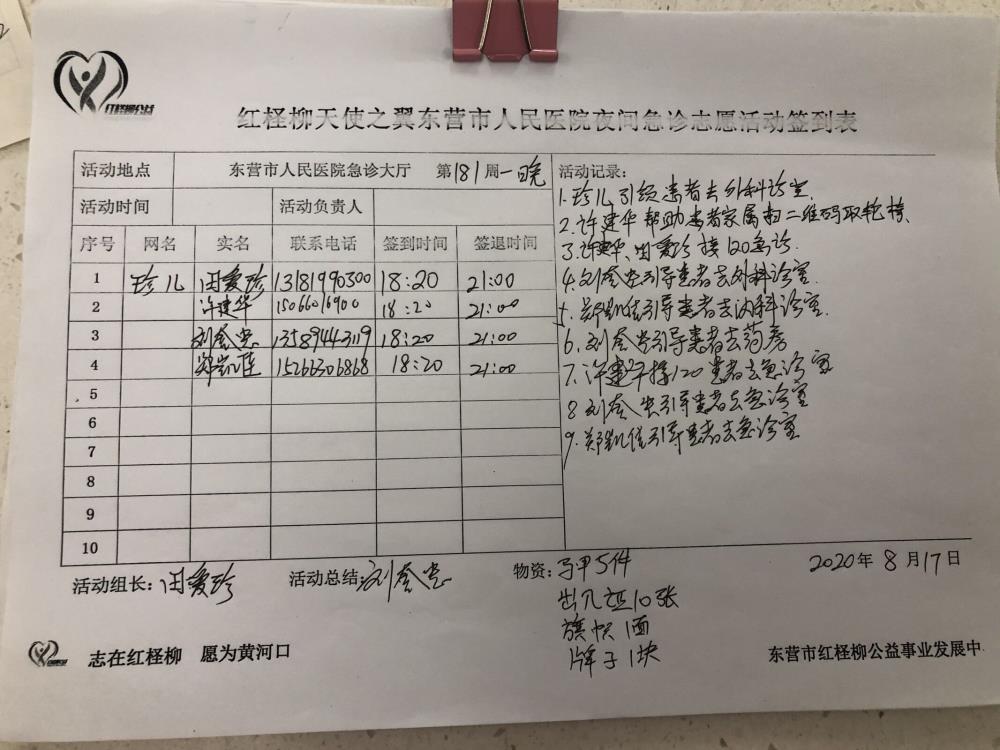 红柽柳公益
红柽柳天使之翼东营市人民医院夜间急诊志愿活动签到表
活动地点 东营市人民医院急诊大厅 第181周一晚
活动时间 活动负责人
序号 网名 实名 联系电话 签到时间 签退时间
1 珍儿 田爱珍 13181990300 18:20 21:00
2 许建华 15066016900 18:20 21:00
3 刘奎忠 13589443119 18:20 21:00
4 郑凯佳 15266306868 18:20 21:00
5
6
7
8
9
10
活动记录:
1.珍儿引领患者去外科诊室.
2.许建华帮助患者家属扫二维码取轮椅.
3.许建华、田爱珍接120急诊.
4.刘奎忠引导患者去外科诊室
5.郑凯佳引导患者去内科诊室.
6.刘奎忠引导患者去药房
7.许建华接120患者去急诊室
8 刘奎忠引导患者去急诊室
9.郑凯佳引导患者去急诊室
活动组长:田爱珍 活动总结:刘奎忠 物资:马甲5件
出入证10张
旗帜1面
牌子1块
2020年8月17日
志在红柽柳 愿为黄河口
东营市红柽柳公益事业发展中